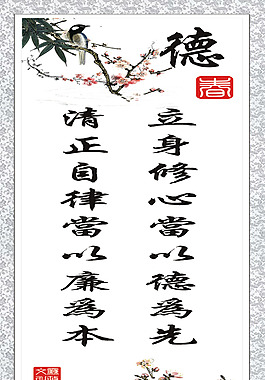 德
春
立身修心當以德爲先
清正自律當以廉爲本